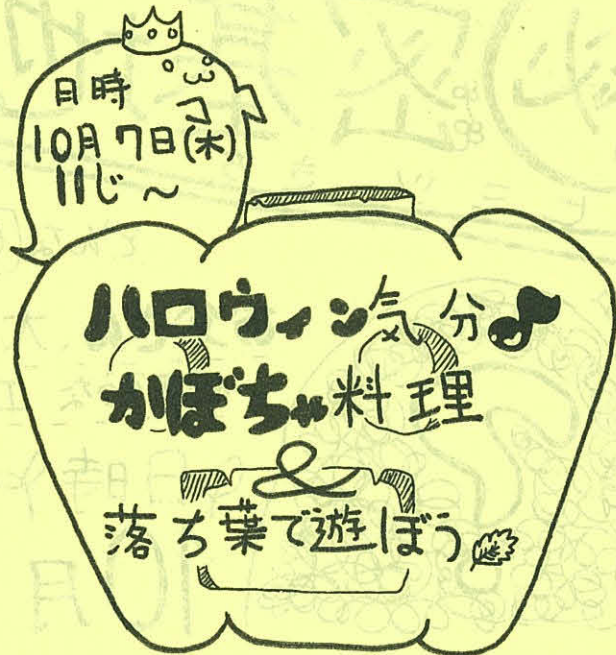 日時
10月7日(木)
11じ～
ハロウィン気分♪
かぼちゃ料理
&
落ち葉で遊ぼう